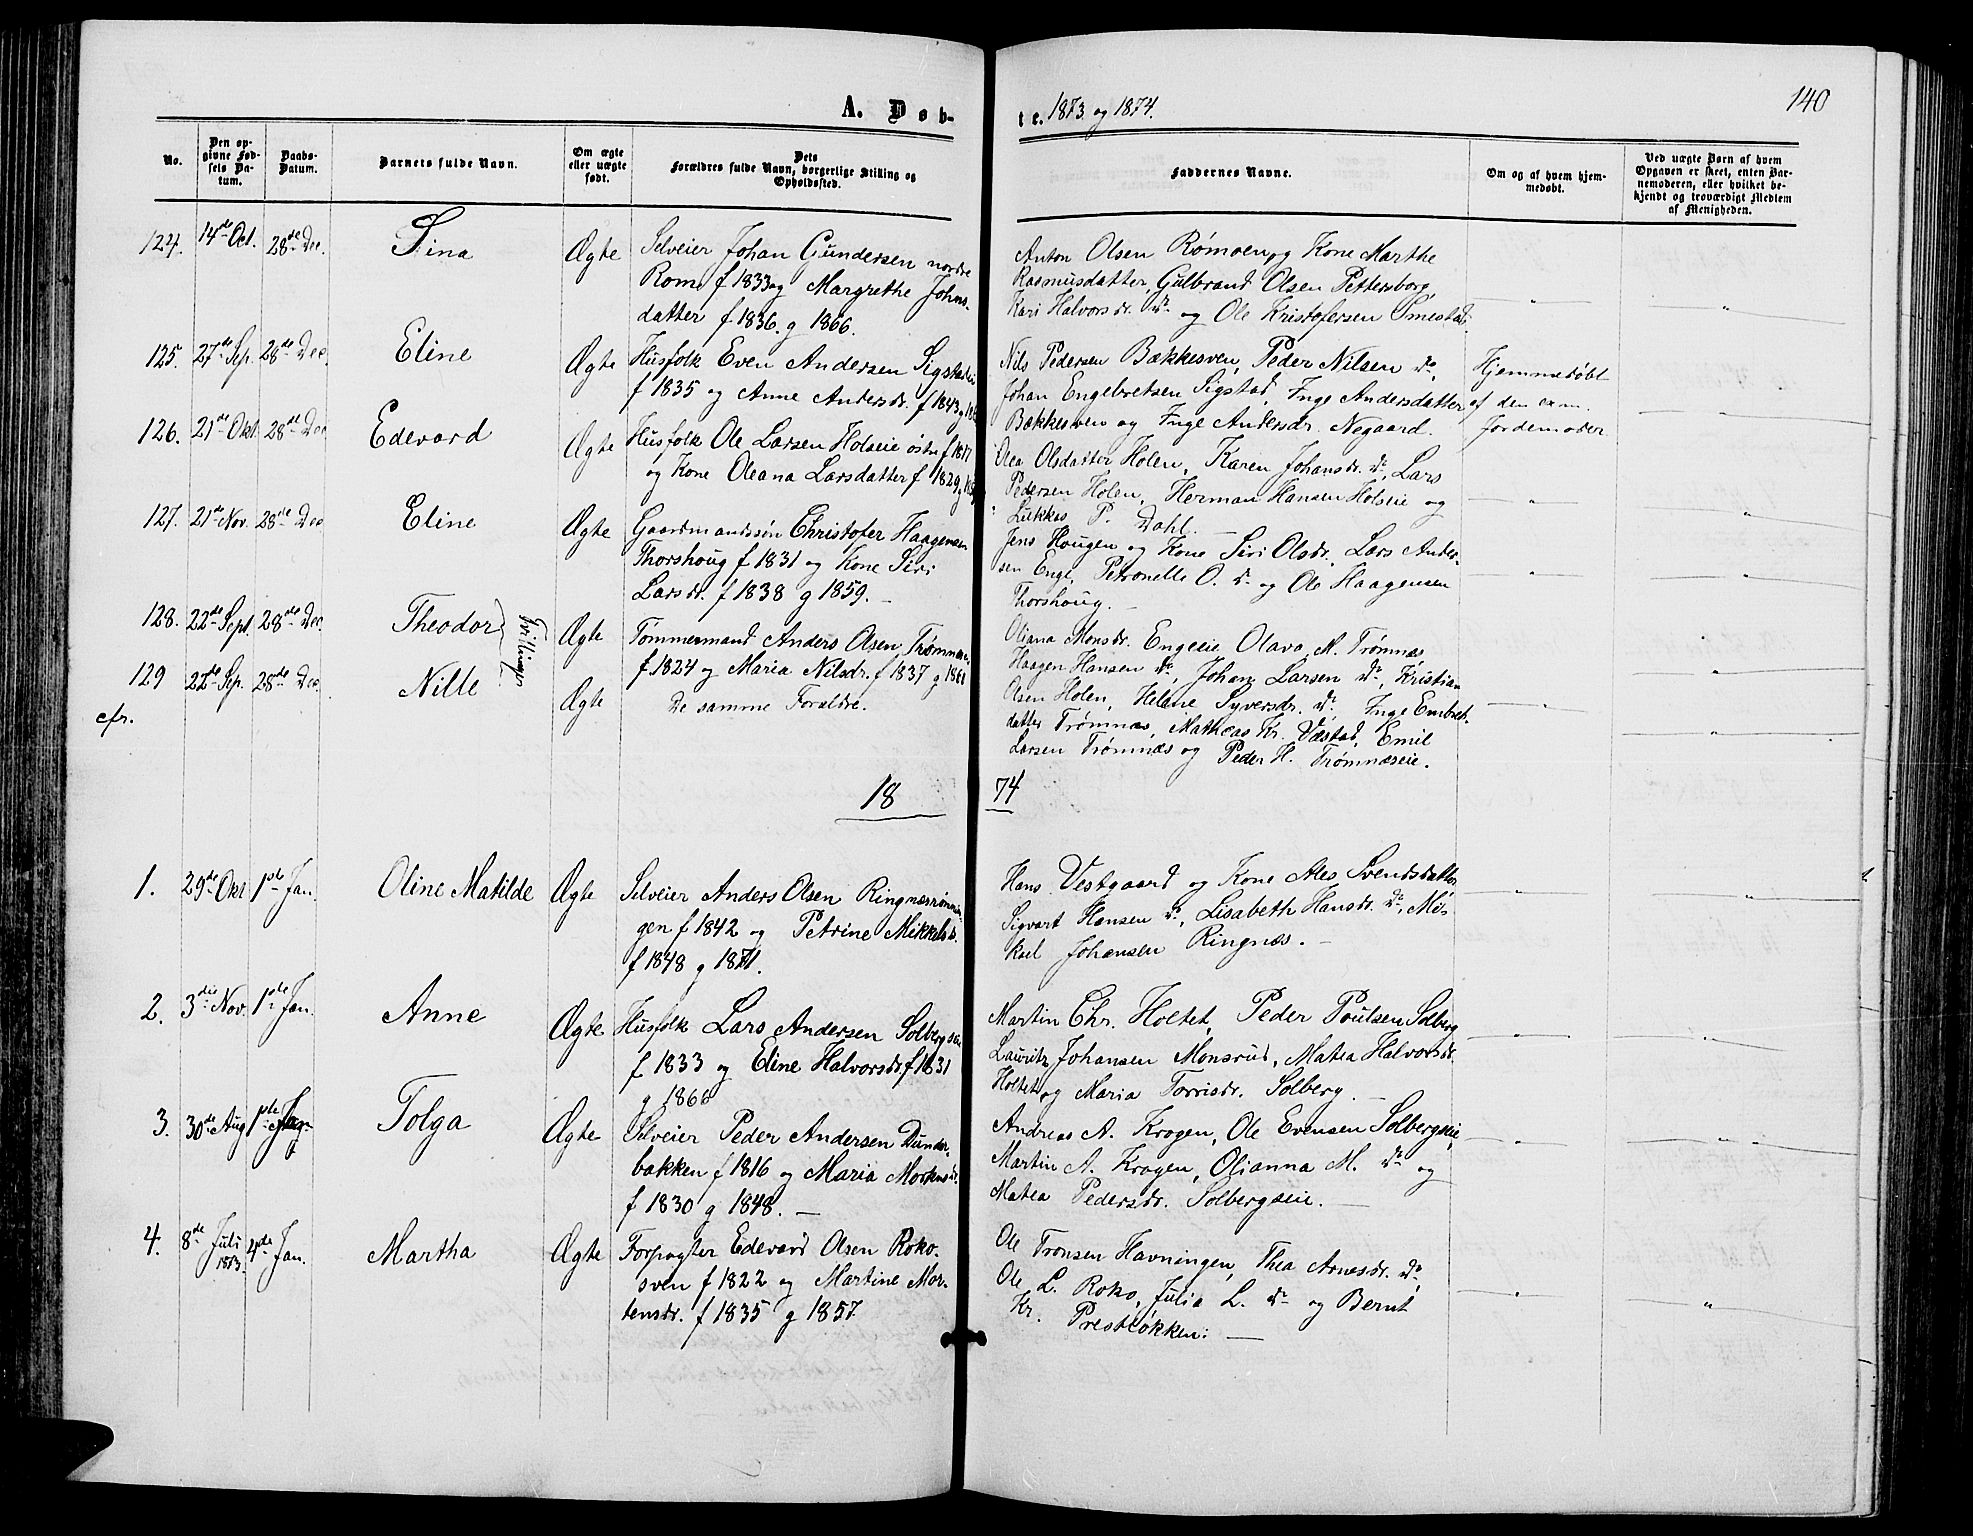 A. Døb-
te. 1873 og 1874.
140
No.
Den op-
givne Fød-
sels Da-
tum.
Daabs-
Datum.
Barnets fulde Navn.
Om ægte
eller uægte
født.
Dets
Forældres fulde Navn, borgerlige Stilling og
Opholdssted.
Faddernes Navne.
Om og af hvem hjem-
medøbt.
Ved uægte Børn af hvem
Opgaven er skeet, enten Bar-
nemoderen, eller hvilket be-
kjendt og troværdigt Medlem
af Menigheden.
124. 14de Oct. 28de Dec. Sina Ægte
Selveier Johan Gundersen nordre
Rom f 1833 og Margrethe Johns-
datter f 1836. g 1866.
Anton Olsen Rømoen og Kone Marthe
Rasmusdatter, Gulbrand Olsen Pettersborg,
Kari Halvorsdr. do og Ole Kristofersen Smestad.
125. 27de Sep. 28de Dec. Eline Ægte
Husfolk Even Andersen Sigstadei
f 1835 og Anne Andersdr. f 1843 g
Nils Pedersen Bækkesven, Peder Nilsen do,
Johan Engebretsen Sigstad, Inge Andersdatter
Bækkesven og Inge Andersdr. Negaard.
Hjemmedøbt
af den exm.
Jordemoder
126. 21de Okt. 28de Dec Edevard Ægte
Husfolk Ole Larsen Holseie østre f 1817
og Kone Oleana Larsdatter f 1829 g
Olea Olsdatter Holen, Karen Johansdr. do, Lars
Pedersen Holen, Herman Hansen Holseie og
Lukkas P. Dahl.
127. 21de Nov. 28de Dec Eline Ægte
Gaardmandssøn Christofer Haagensen
Thorshoug f 1831 og Kone Siri
Larsdr. f 1838 g 1859.
Jens Hougen og Kone Siri Olsdr. Lars Ander-
sen Enge, Petronelle O. do og Ole Haagensen
Thorshoug.
128. 22de Sept. 28de Dec. Theodor Tvillinger Ægte
Tømmermand Anders Olsen Trømnæs
f. 1824 og Maria Nilsdr. f 1837 g 1860
Oliana Monsdr. Engeeie, Olava M. Trømnæs
Haagen Hansen do, Johan Larsen do, Kristian
129 22de Sep. 28de Dec. Nille Ægte
De samme Forældre.
Olsen Holen, Helene Syversdr. do. Inge Embret-
datter Trømnæs, Mathæas Kr. Væstad, Emil
Larsen Trømnæs og Peder H. Trømnæseie.
cfr.
18 74
1. 29de Okt 1ste Jan. Oline Matilde Ægte
Selveier Anders Olsen Ringnæsrønnin-
gen f 1842 og Petrine Mikkelsdr.
f 1848 g 1871.
Hans Vestgaard og Kone Ales Svendsdatter
Sigvart Hansen do, Lisabeth Hansdr. do, Mi-
kael Johansen Ringnæs.
2. 3die Nov. 1ste Jan. Anne Ægte
Husfolk Lars Andersen Solbergseie
f 1833 og Eline Halvorsdr. f 1831
g 1866
Martin Chr. Holtet, Peder Poulsen Solberg
Lauritz Johansen Monsrud, Matea Halvorsdr.
Holtet og Maria Torrisdr. Solberg.
3. 30de Aug 1ste Jan Tolga Ægte
Selveier Peder Andersen Dunder-
bakken f 1816 og Maria Mortensdr.
f 1830 g 1848.
Andreas A. Krogen, Ole Evensen Solbergseie
Martin A. Krogen, Olianna M. do og
Matea Pedersdr. Solbergseie.
4. 8de Juli 1873. 4de Jan. Martha Ægte
Forpagter Edevard Olsen Roko-
sven f 1822 og Martine Mor-
tensdr. f 1835 g 1857
Ole Tronsen Havningen, Thea Arnesdr. do,
Ole L. Roko, Julia L. do og Bernt
Kr. Prestløkken.